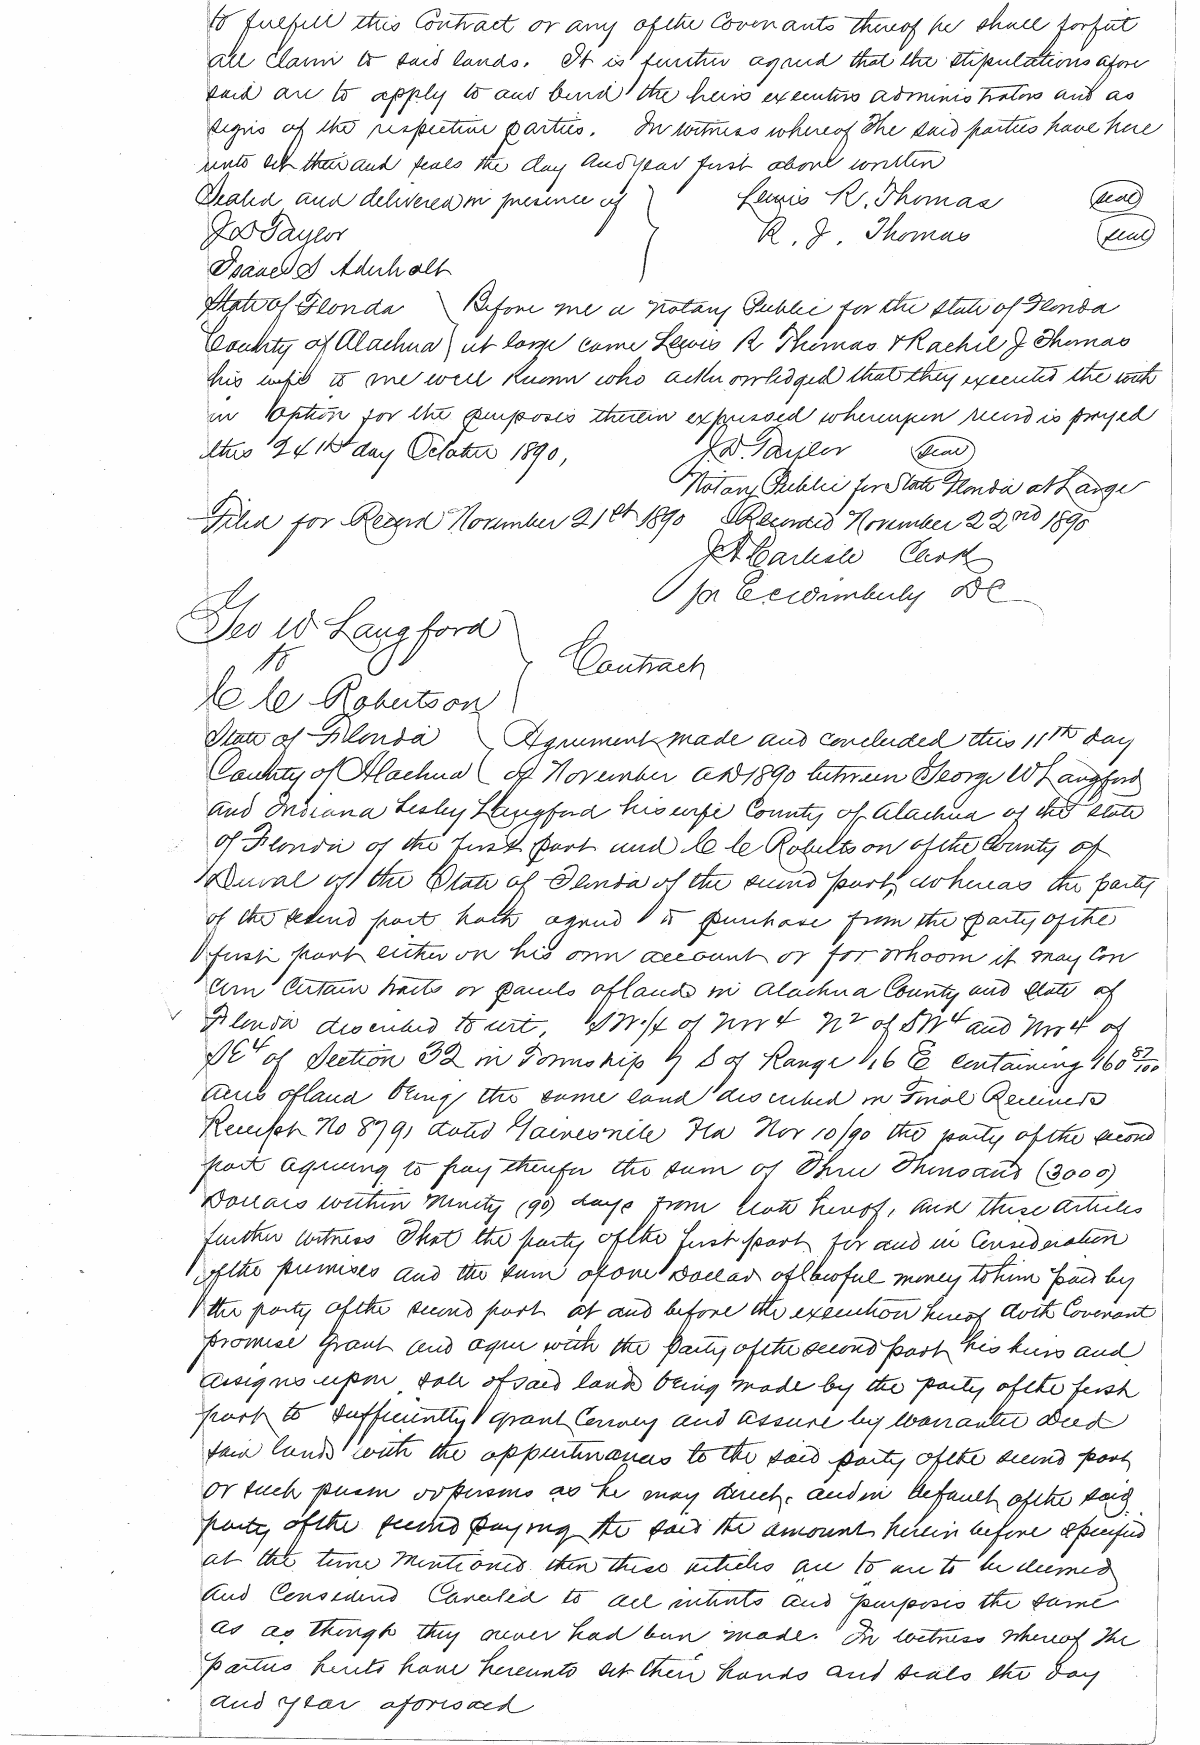 to fulfill this Contract or any of the Covenants thereof he shall forfeit
all claim to said lands. It is further agreed that the stipulations afore
said are to apply to and bind the heirs executors administrators and as
signs of the respective parties. In witness whereof The said parties have here
unto set their and seals the day and year first above written
Sealed and delivered in presence of Lewis R. Thomas (seal)
J D Taylor R. J. Thomas (seal)
Isaac S Aderholt
State of Florida Before me a Notary Public for the State of Florida
County of Alachua at large came Lewis R Thomas & Rachel J Thomas
his wife to me well known who acknowledged that they executed the with
in Option for the purposes therein expressed whereupon record is prayed
this 24th day October 1890, J. D. Taylor (seal)
Notary Public for State Florida at Large
Filed for Record November 21st 1890 Recorded November 22nd 1890
J A Carlisle Clerk
pr E. C. Wimberly DC
Geo W Langford
to Contract
C C Robertson
State of Florida Agreement made and concluded this 11th day
County of Alachua of November AD 1890 between George W Langford
and Indiana Lesley Langford his wife County of Alachua of the State
of Florida of the first part and C C Robertson of the County of
Duval of the State of Florida of the second part, whereas the party
of the second part hath agreed to purchase from the party of the
first part either on his own account or for whoom it may Con
cern Certain tracts or parcels of land in Alachua County and State of
Florida described to wit, SW 1/4 of NW 4 N2 of SW4 and NW 4 of
SE4 of Section 32 in Township 7 S of Range 16 E containing 160 87/100
acres of land being the same land described in Final Receivers
Receipt No 8791 dated Gainesville Fla Nov 10/90 the party of the second
part agreeing to pay therefor the sum of Three Thousand (3000)
Dollars within Ninety (90) days from date hereof, and these articles
further witness That the party of the first part for and in Consideration
of the premises and the sum of one Dollar of lawful money to him paid by
the party of the second part at and before the execution hereof doth Covenant
promise grant and agree with the party of the second part his heirs and
assigns upon sale of said land being made by the party of the first
part to sufficiently grant Convey and assure by Warrantee Deed
said lands with the appertinances to the said party of the second part
or such person or persons as he may direct. and in default of the said
party of the second paying the said the amount herein before specified
at the time mentioned then these articles are to are to be deemed
and Considered Canceled to all intents and purposes the same
as as though they never had been made. In witness whereof the
parties hereto have hereunto set their hands and seals the day
and year aforesaid